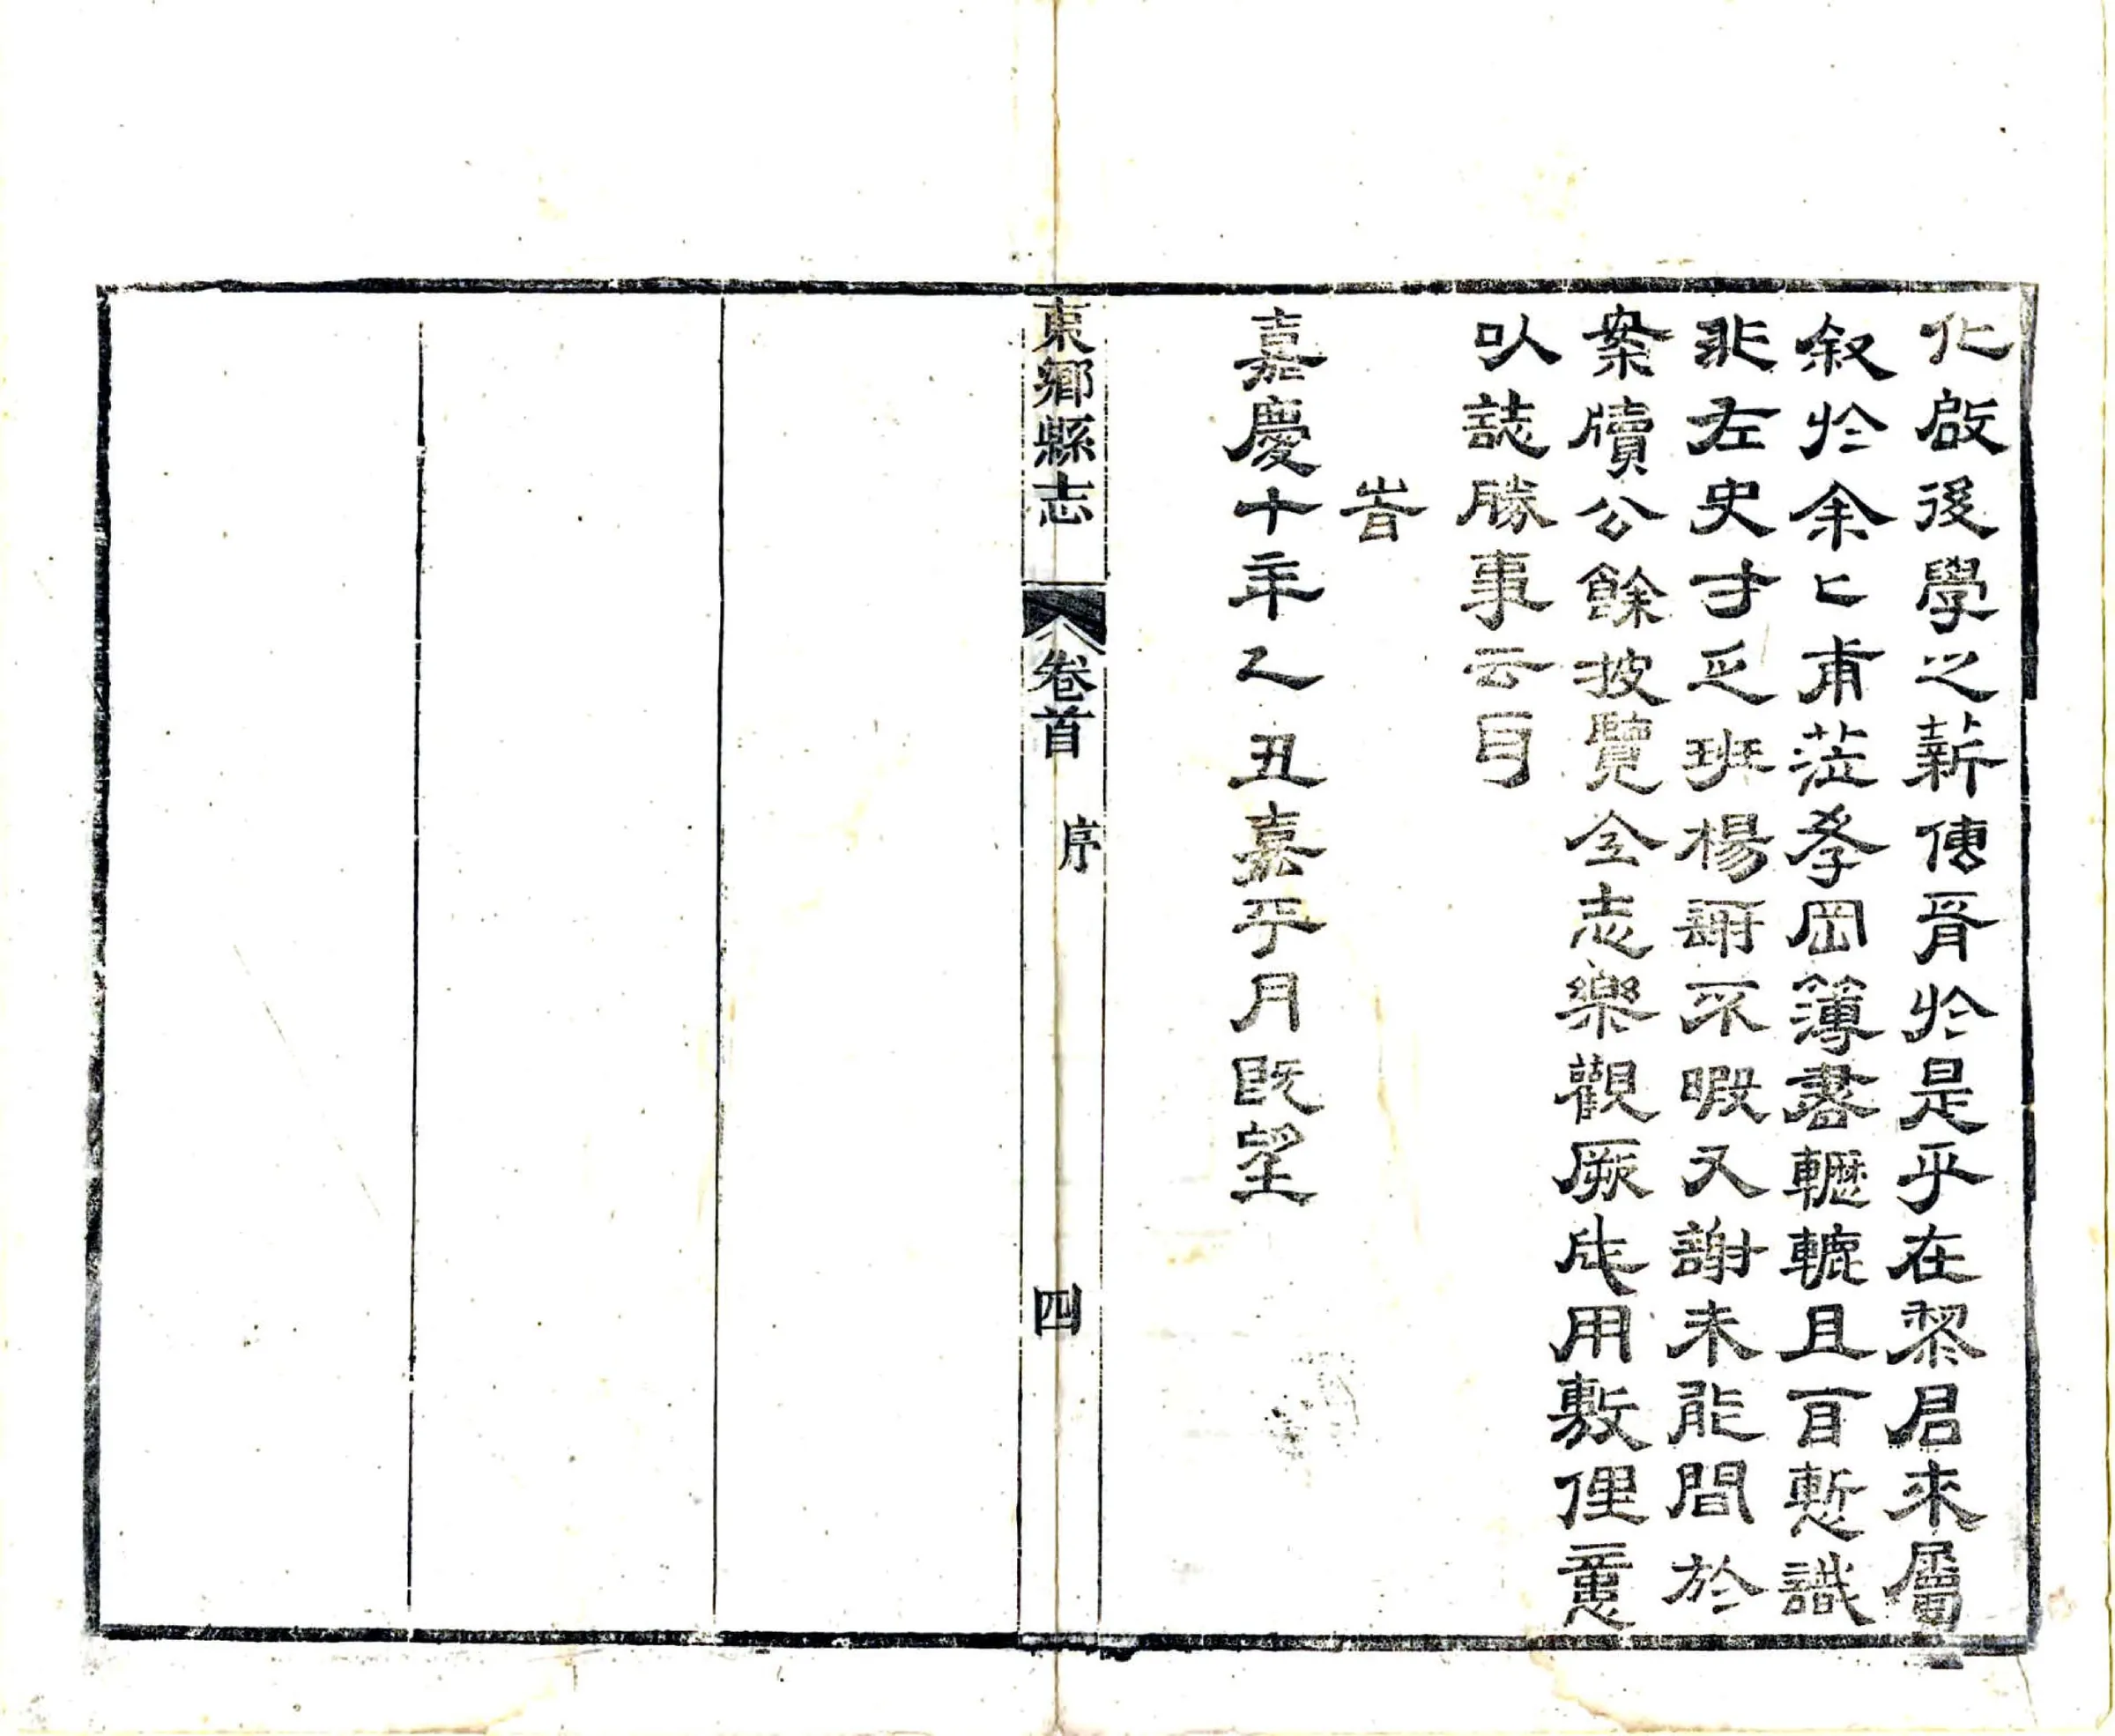 化啟後學之薪傳胥於是乎在黎君來屬
叙於余匕甫蒞孝岡簿書轣轆且百慙識
非左史才乏班楊詞不暇又謝未能間於
案牘公餘披覽全志樂觀厥成用敷俚意
以誌勝事云爾
旹
嘉慶十年乙丑嘉平月既望
東鄉縣志
卷首
序
四